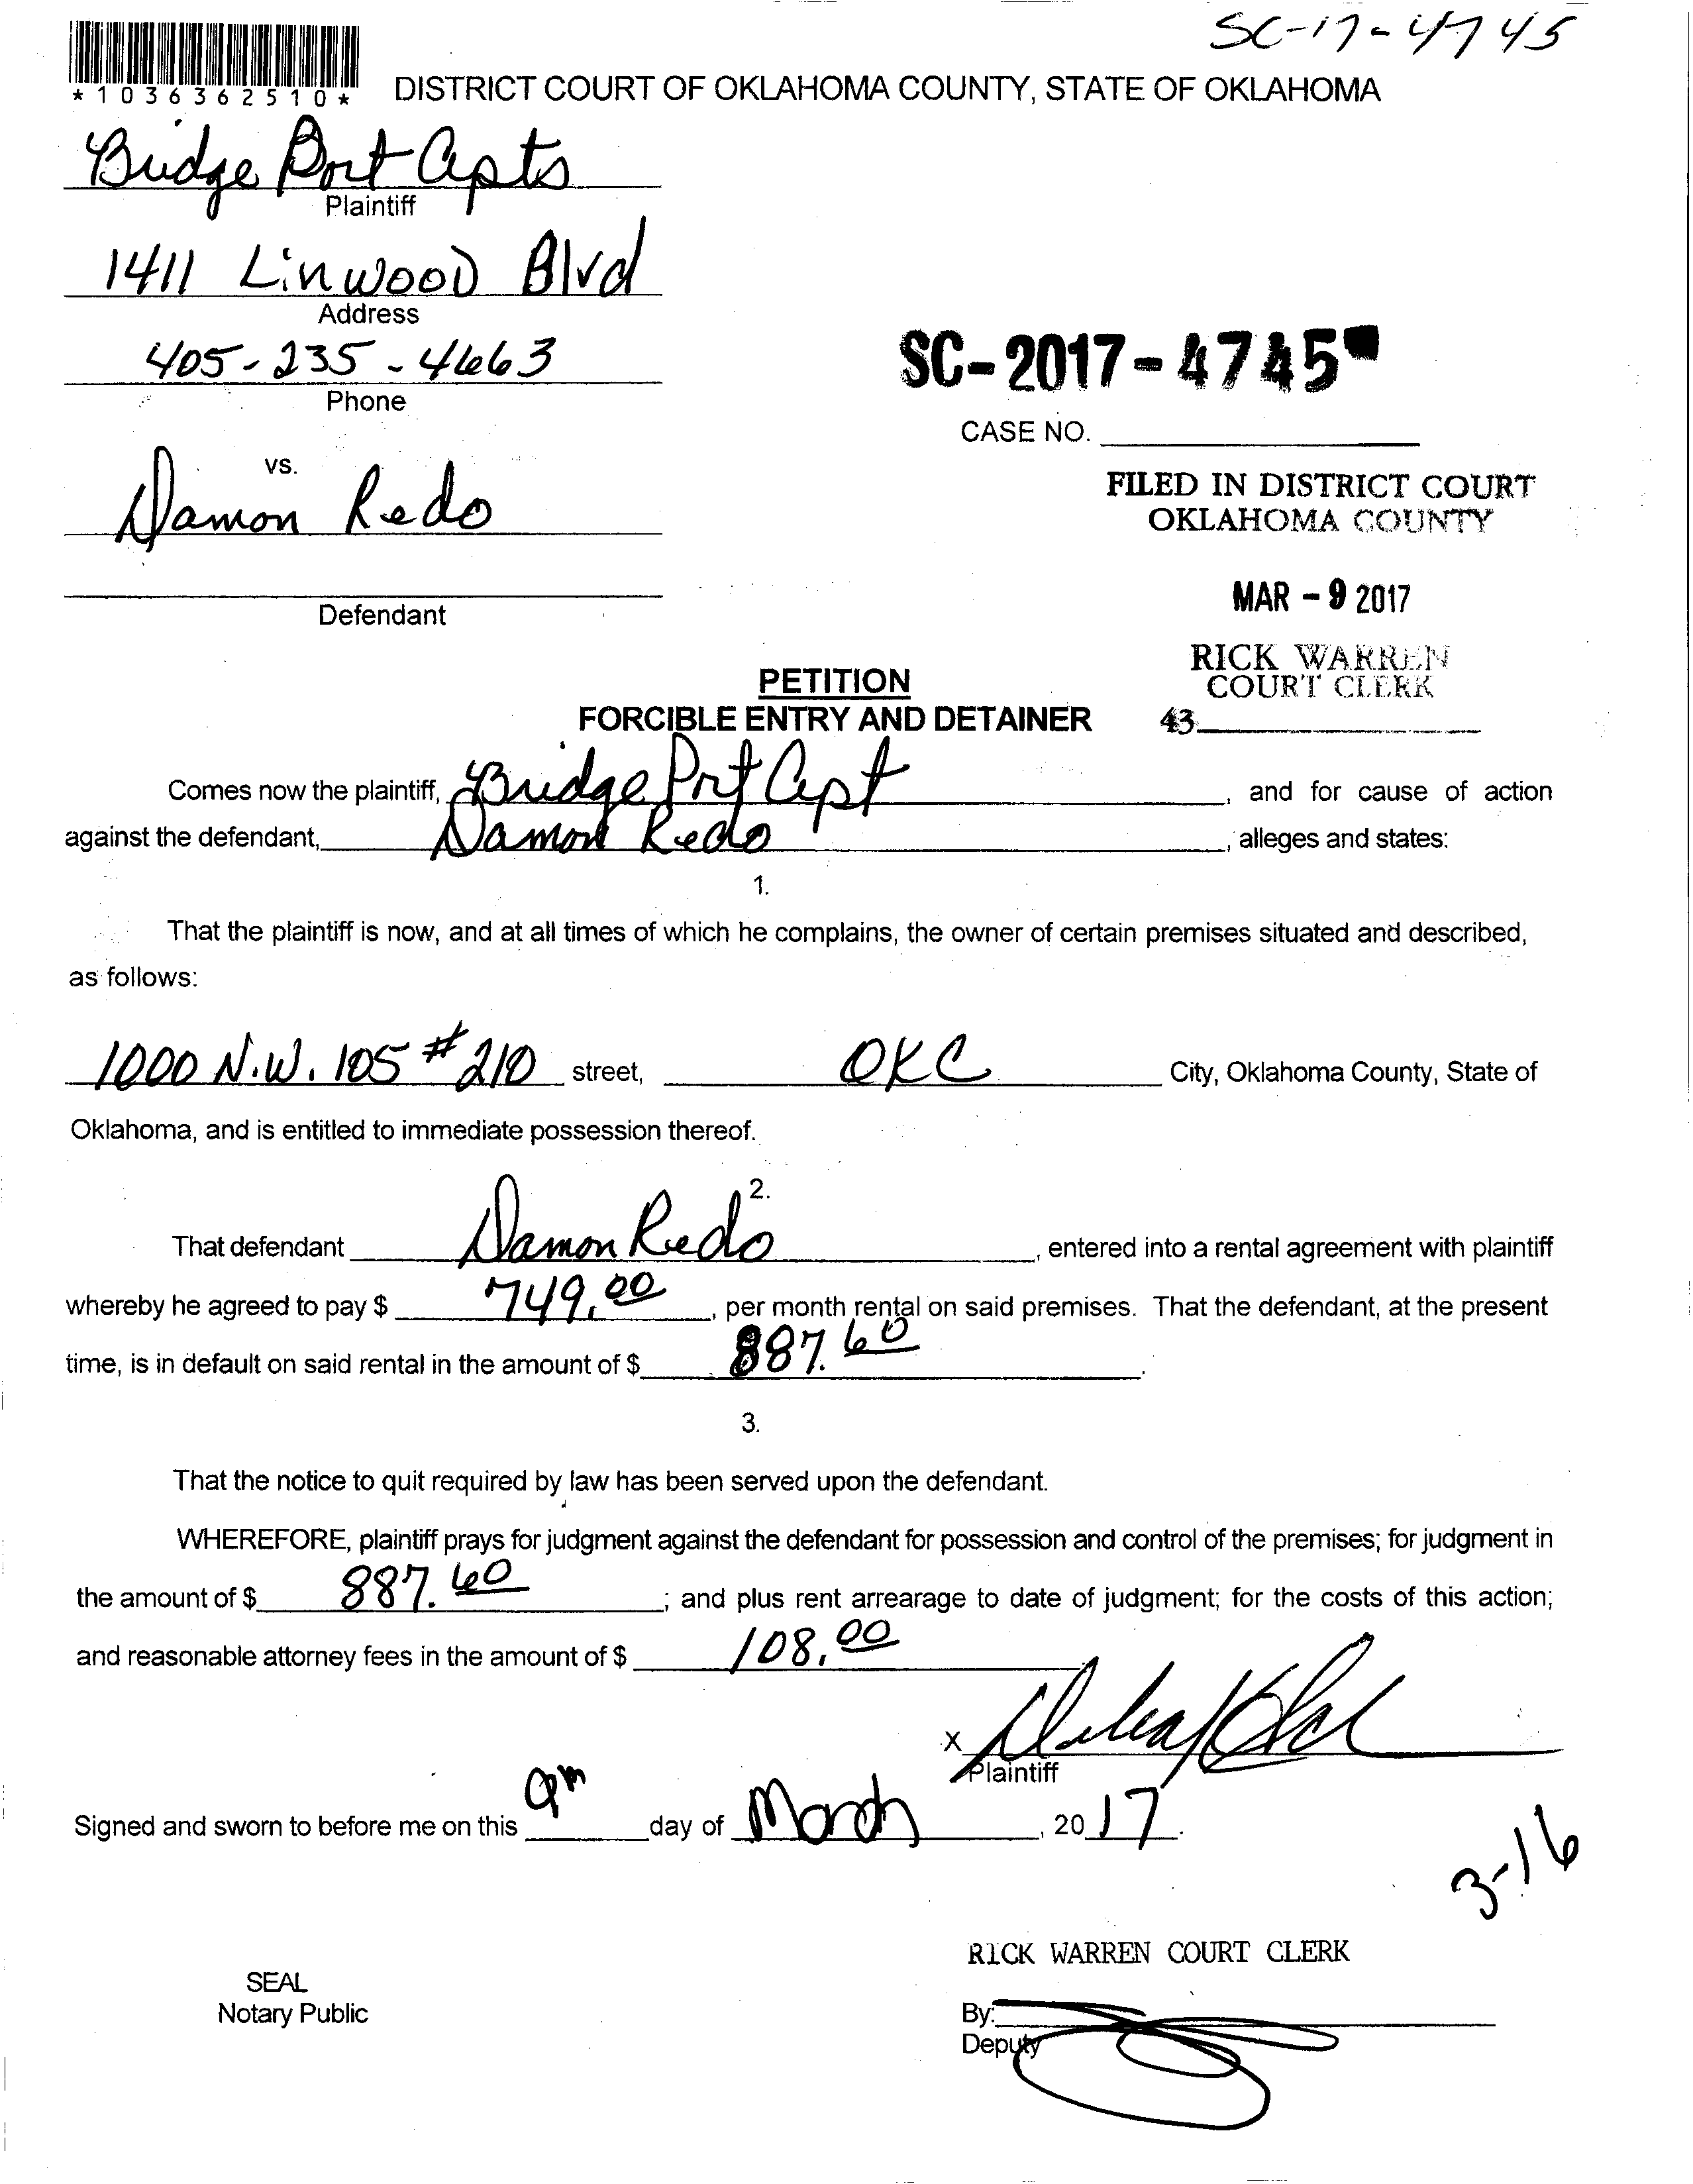 SC-17-4745
*1036362510*
DISTRICT COURT OF OKLAHOMA COUNTY, STATE OF OKLAHOMA
Bridge Port Apts
Plaintiff
1411 Linwood Blvd
Address
405-235-4663
Phone
SC-2017-4745
CASE NO.
vs.
Damon Redo
FILED IN DISTRICT COURT
OKLAHOMA COUNTY
MAR - 9 2017
Defendant
RICK WARREN
COURT CLERK
43
PETITION
FORCIBLE ENTRY AND DETAINER
Comes now the plaintiff, Bridge Port Apt, and for cause of action
against the defendant, Damon Redo, alleges and states:
1.
That the plaintiff is now, and at all times of which he complains, the owner of certain premises situated and described,
as follows:
1000 N.W. 105 #210 street, OKC City, Oklahoma County, State of
Oklahoma, and is entitled to immediate possession thereof.
2.
That defendant Damon Redo, entered into a rental agreement with plaintiff
whereby he agreed to pay $ 749.00, per month rental on said premises. That the defendant, at the present
time, is in default on said rental in the amount of $ 887.60.
3.
That the notice to quit required by law has been served upon the defendant.
WHEREFORE, plaintiff prays for judgment against the defendant for possession and control of the premises; for judgment in
the amount of $ 887.60; and plus rent arrearage to date of judgment; for the costs of this action;
and reasonable attorney fees in the amount of $ 108.00
X
Plaintiff
Signed and sworn to before me on this 9th day of March, 2017.
3-16
RICK WARREN COURT CLERK
SEAL
Notary Public
By:
Deputy